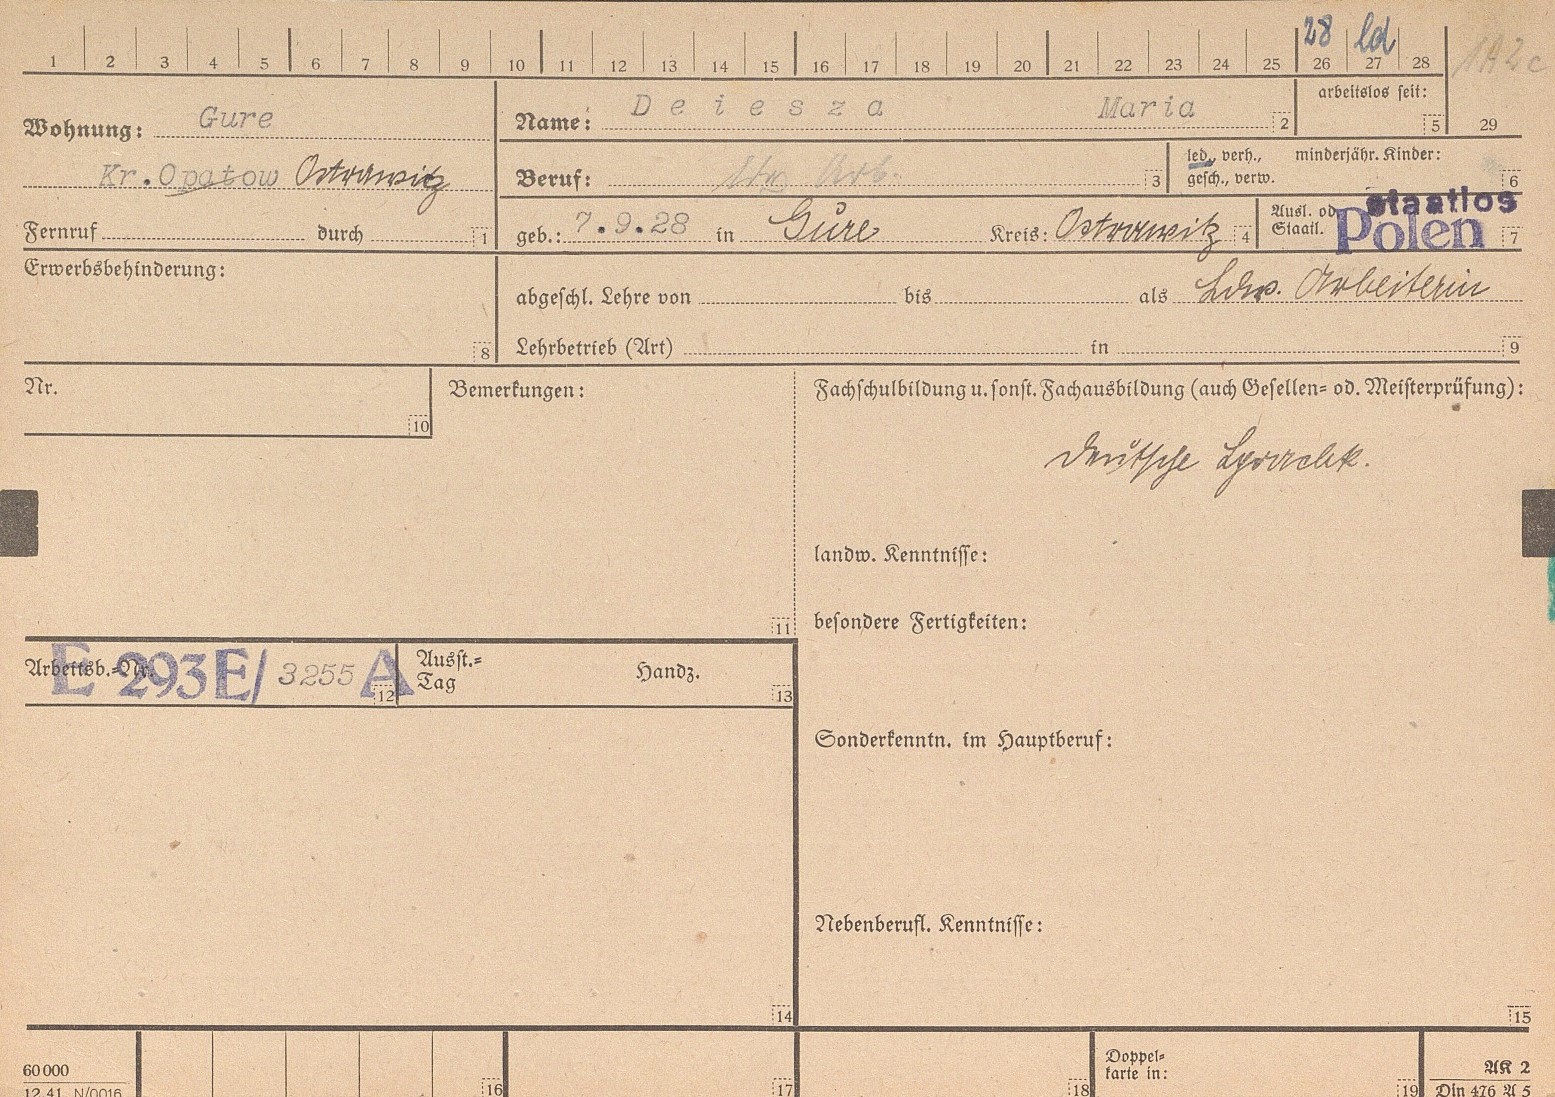 28 ld
1 2 3 4 5 6 7 8 9 10 11 12 13 14 15 16 17 18 19 20 21 22 23 24 25 26 27 28 1A2c
Wohnung: Gure
Name: Deiesza Maria 2
arbeitslos seit: 5
29
Kr. Opatow Ostrawitz
Beruf: Arb. 3
led., verh., gesch., verw.
minderjähr. Kinder: 6
Fernruf durch 1
geb.: 7.9.28 in Gure Kreis: Ostrawitz 4
Ausl. od. Staatl. staatlos Polen 7
Erwerbsbehinderung: 8
abgeschl. Lehre von bis als Ldw. Arbeiterin
Lehrbetrieb (Art) in 9
Nr. 10
Bemerkungen: 11
Fachschulbildung u. sonst. Fachausbildung (auch Gesellen= od. Meisterprüfung):
Deutsche Sprachk.
landw. Kenntnisse:
besondere Fertigkeiten:
Arbeitsb.=Nr. E 293E/ 3255 A 12
Ausst.=Tag Handz. 13
Sonderkenntn. im Hauptberuf:
Nebenberufl. Kenntnisse:
14
15
60 000
12.41. N/0016
16
17
18
Doppel=
karte in:
19
AK 2
Din 476 A 5